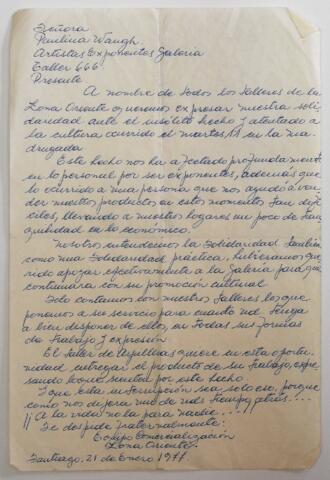 Señora
Paulina Waugh
Artistas Exponentes Galería
Taller 666
Presente
A nombre de todos los talleres de la
Zona Oriente queremos expresar nuestra soli
daridad ante el insólito hecho y atentado a
la cultura ocurrido el martes 18 en la ma
drugada
Este hecho nos ha afectado profundamente
en lo personal por ser exponentes, además que
lo ocurrido a una persona que nos ayudó a ven
der nuestros productos en estos momentos tan difí
ciles, llevando a nuestros hogares un poco de tran
quilidad en lo económico.
Nosotros entendemos la solidaridad también
como una solidaridad práctica, hubiéramos que
rido apoyar efectivamente a la Galería para que
continuara con su promoción cultural
Solo contamos con nuestros talleres los que
ponemos a su servicio para cuando ud. tenga
a bien disponer de ellos, en todas sus formas
de trabajo y expresión
El taller de Arpilleras quiere en esta oportu
nidad entregar el producto de su trabajo, expre
sando lo que sienten por este hecho
Y que esta inscripción sea solo eso, porque
como nos dijera uno de uds tiempo atrás...!
¡¡A la vida no la para nadie...!!
Se despide fraternalmente:
Equipo Comercialización
Zona Oriente.
Santiago, 21 de Enero 1977.